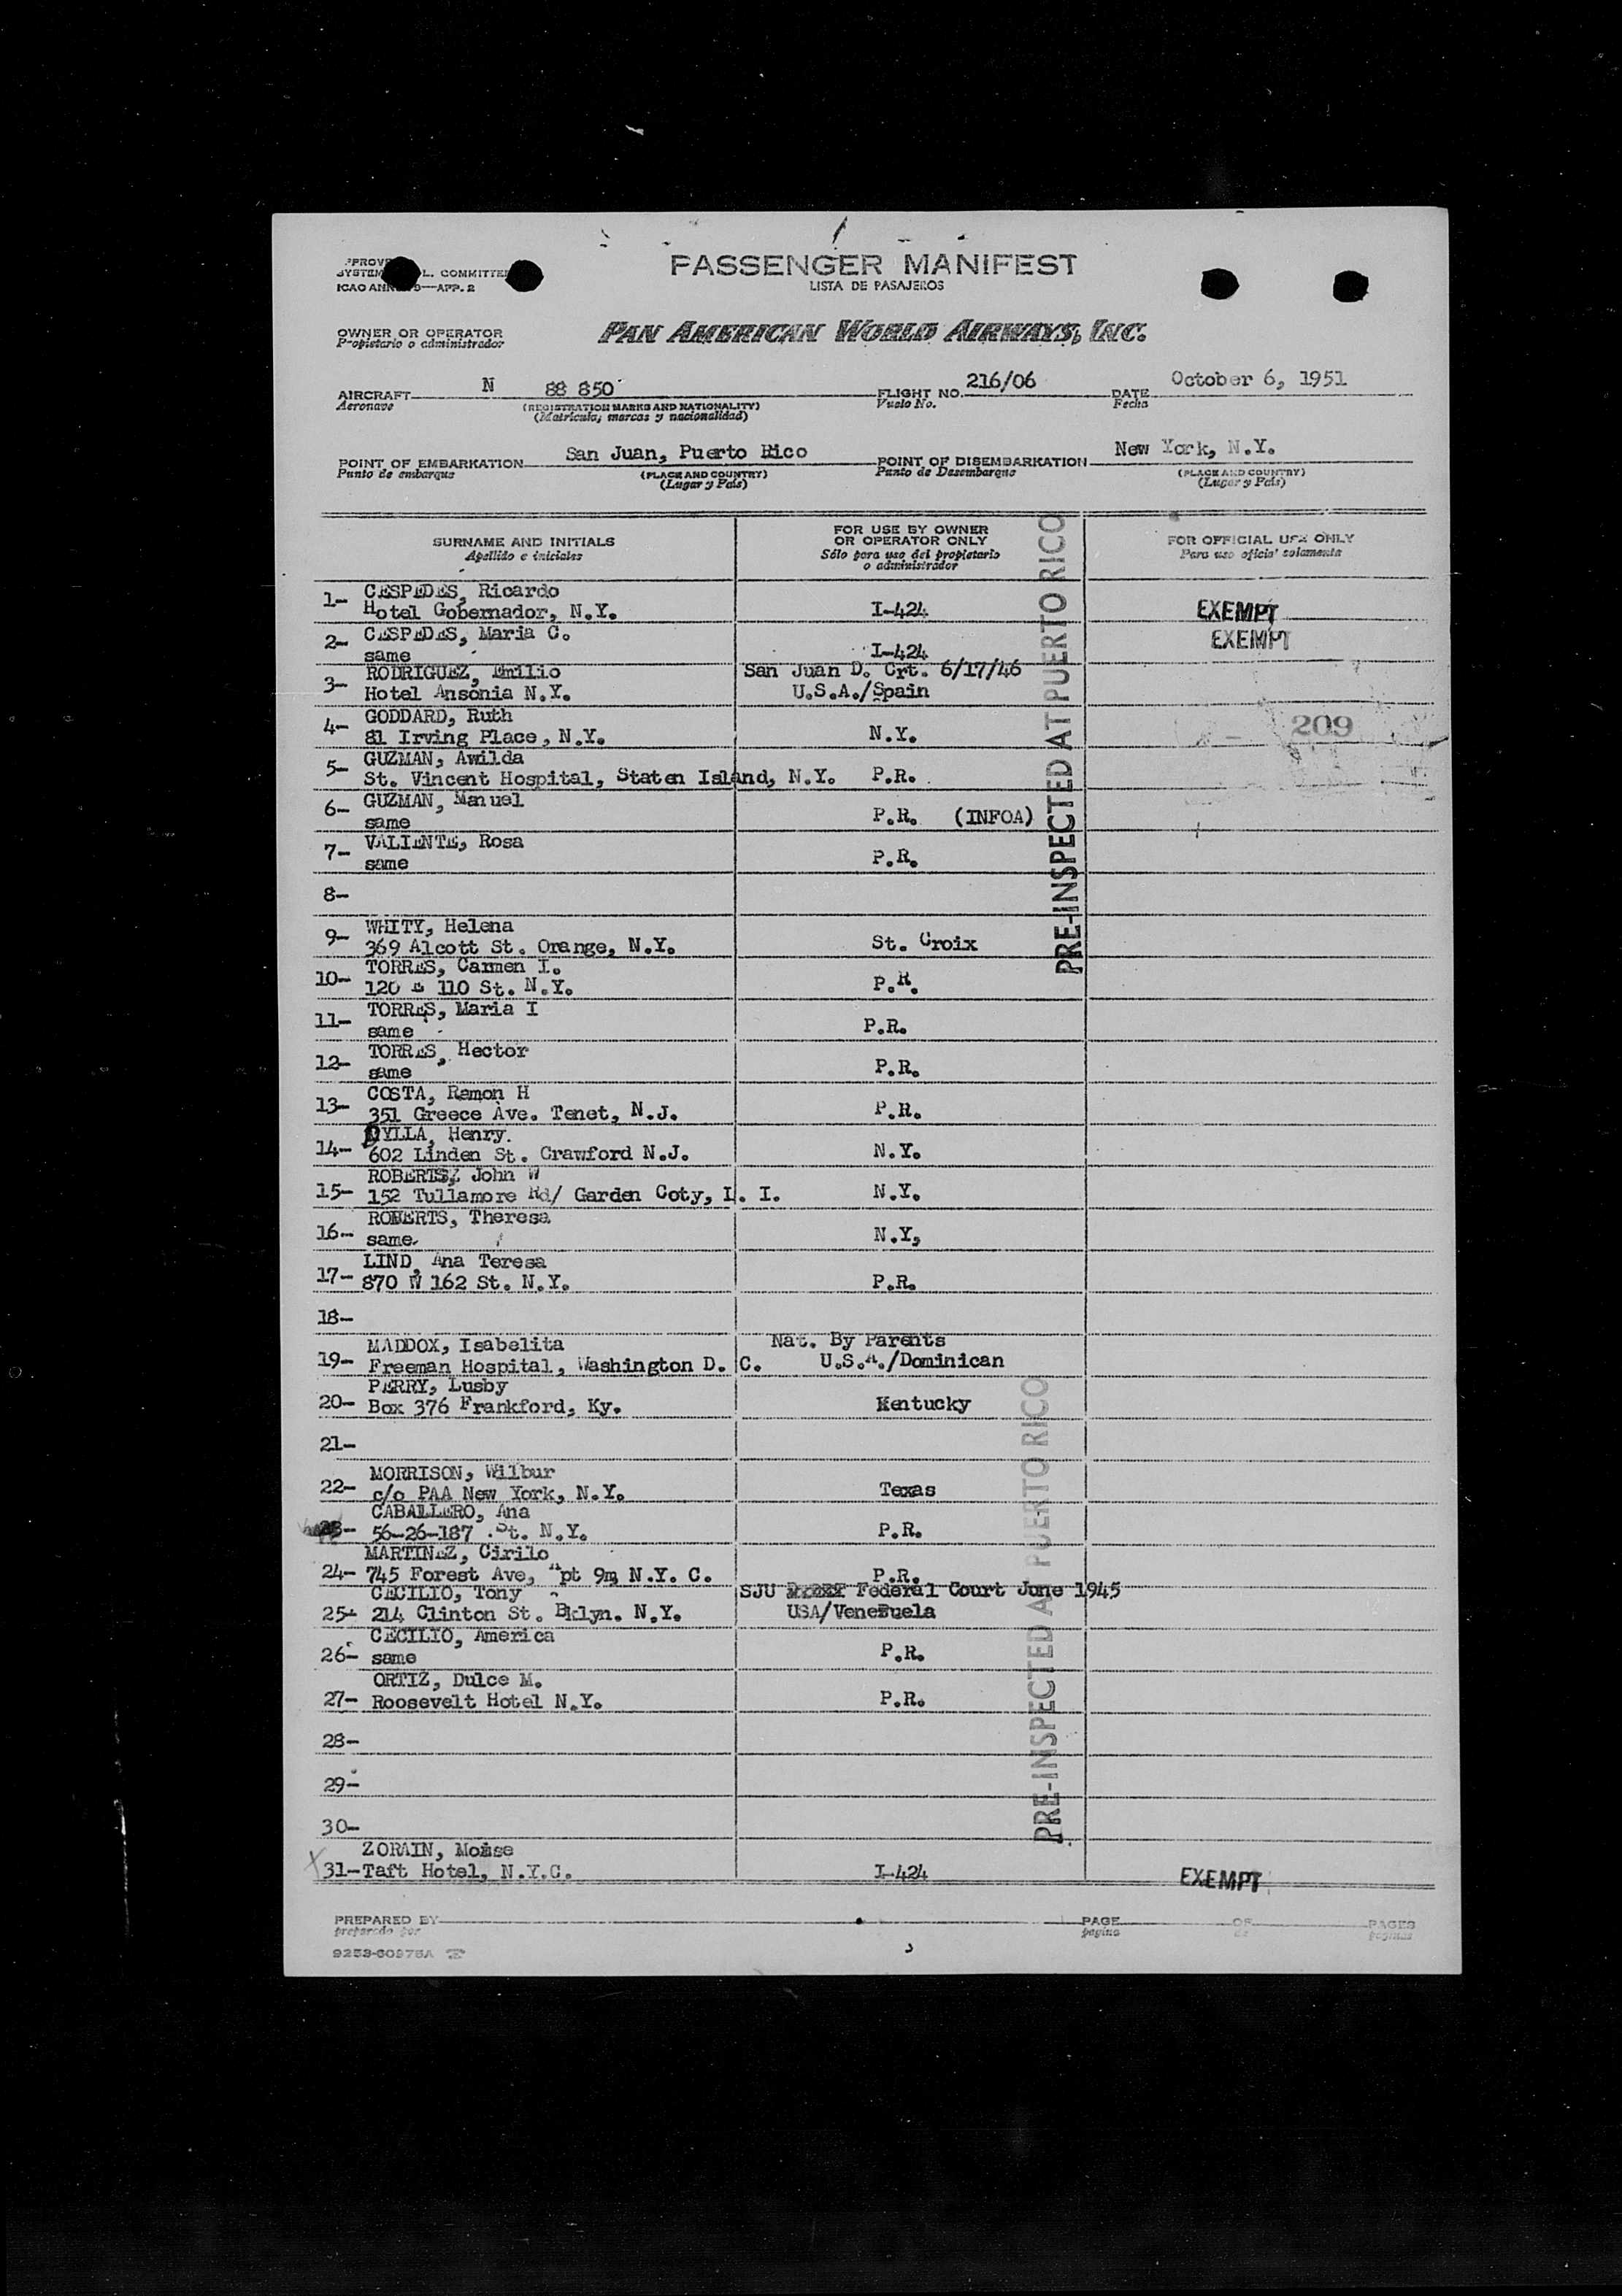 PASSENGER MANIFEST
LISTA DE PASAJEROS
L. COMMITTEE
OWNER OR OPERATOR
Propietario o administrador
PAN AMERICAN WORLD AIRWAYS, INC.
AIRCRAFT N 88 850 FLIGHT NO. 216/06 DATE October 6, 1951
Aeronave (REGISTRATION MARKS AND NATIONALITY) Vuelo No. Fecha
(Matricula, marcas y nacionalidad)
POINT OF EMBARKATION San Juan, Puerto Rico POINT OF DISEMBARKATION New York, N.Y.
Punto de embarque (PLACE AND COUNTRY) Punto de Desembarque (PLACE AND COUNTRY)
(Lugar y País) (Lugar y País)
SURNAME AND INITIALS
Apellido e iniciales
FOR USE BY OWNER
OR OPERATOR ONLY
Sólo para uso del propietario
o administrador
FOR OFFICIAL USE ONLY
Para uso oficial solamente
1- CESPEDES, Ricardo
Hotel Gobernador, N.Y. I-424 EXEMPT
2- CESPEDES, Maria C. EXEMPT
same I-424
3- RODRIGUEZ, Emilio San Juan D. Crt. 6/17/46
Hotel Ansonia N.Y. U.S.A./Spain
4- GODDARD, Ruth
81 Irving Place, N.Y. N.Y. 209
5- GUZMAN, Awilda
St. Vincent Hospital, Staten Island, N.Y. P.R.
6- GUZMAN, Manuel
same P.R. (INFOA)
7- VALIENTE, Rosa
same P.R.
8-
9- WHITY, Helena
369 Alcott St. Orange, N.Y. St. Croix
10- TORRES, Carmen I.
120 E 110 St. N.Y. P.R.
11- TORRES, Maria I
same P.R.
12- TORRES, Hector
same P.R.
13- COSTA, Ramon H
351 Greece Ave. Tenet, N.J. P.R.
14- DYLLA, Henry.
602 Linden St. Crawford N.J. N.Y.
15- ROBERTS, John W
152 Tullamore Rd/ Garden Coty, L. I. N.Y.
16- ROBERTS, Theresa
same N.Y,
17- LIND, Ana Teresa
870 W 162 St. N.Y. P.R.
18-
19- MADDOX, Isabelita Nat. By Parents
Freeman Hospital, Washington D. C. U.S.A./Dominican
20- PERRY, Lusby
Box 376 Frankford, Ky. Kentucky
21-
22- MORRISON, Wilbur
c/o PAA New York, N.Y. Texas
23- CABALLERO, Ana
56-26-187 St. N.Y. P.R.
24- MARTINEZ, Cirilo
745 Forest Ave, Apt 9m N.Y. C. P.R.
25- CECILIO, Tony SJU Federal Court June 1945
214 Clinton St. Bklyn. N.Y. USA/Venezuela
26- CECILIO, America
same P.R.
27- ORTIZ, Dulce M.
Roosevelt Hotel N.Y. P.R.
28-
29-
30-
ZORAIN, Moise
X 31- Taft Hotel, N.Y.C. I-424 EXEMPT
PRE-INSPECTED AT PUERTO RICO
PRE-INSPECTED AT PUERTO RICO
PREPARED BY PAGE OF PAGES
preparado por página de páginas
9253-60975A